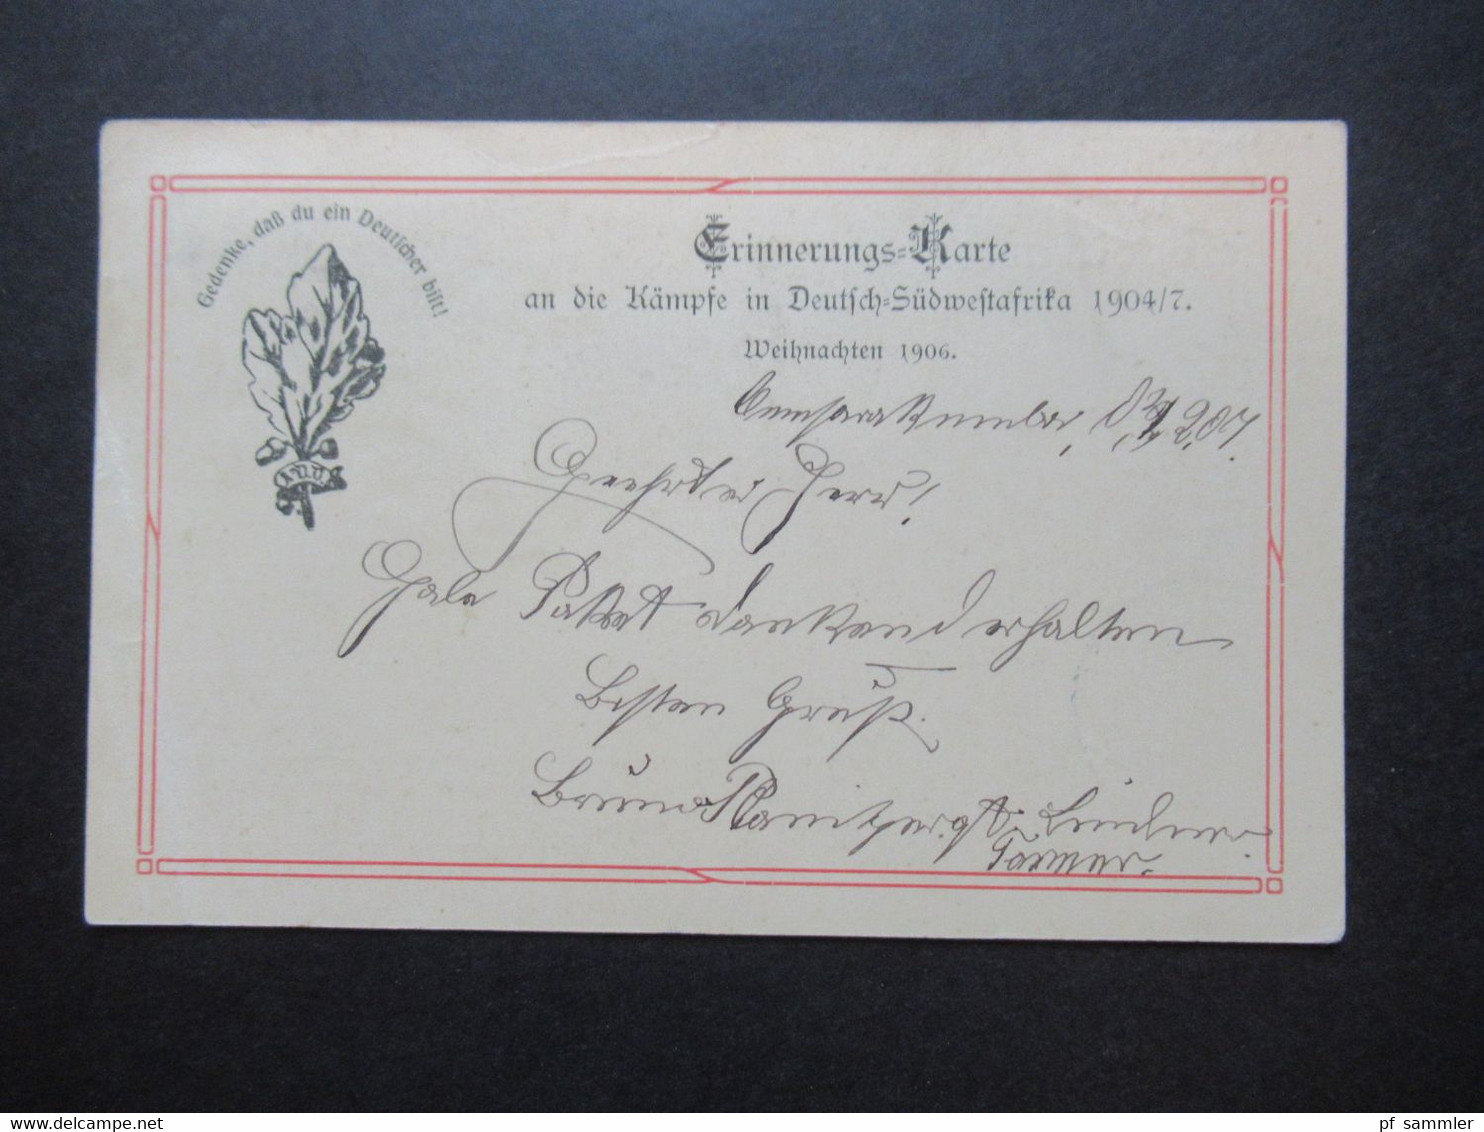 Gedenke, daß du ein Deutscher bist!
Erinnerungs-Karte
an die Kämpfe in Deutsch-Südwestafrika 1904/7.
Weihnachten 1906.
2.07.
Geehrter Herr!
Habe Paket dankend erhalten
Besten Gruß.
Bruno Lindner
Farmer.
www.delcampe.net
pf_sammler